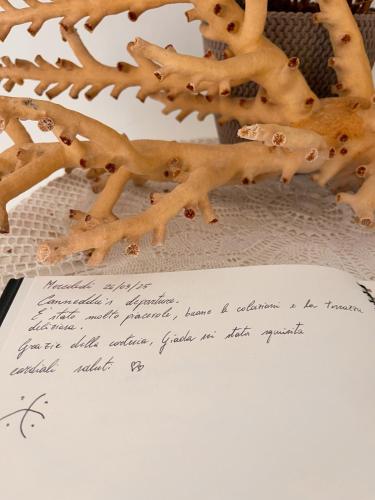 Mercoledì 26/03/25
Canneddi's departure.
E' stato molto piacevole, buone le colazioni e la terrazza
deliziosa.
Grazie della cortesia, Giada sei stata squisita
cordiali saluti